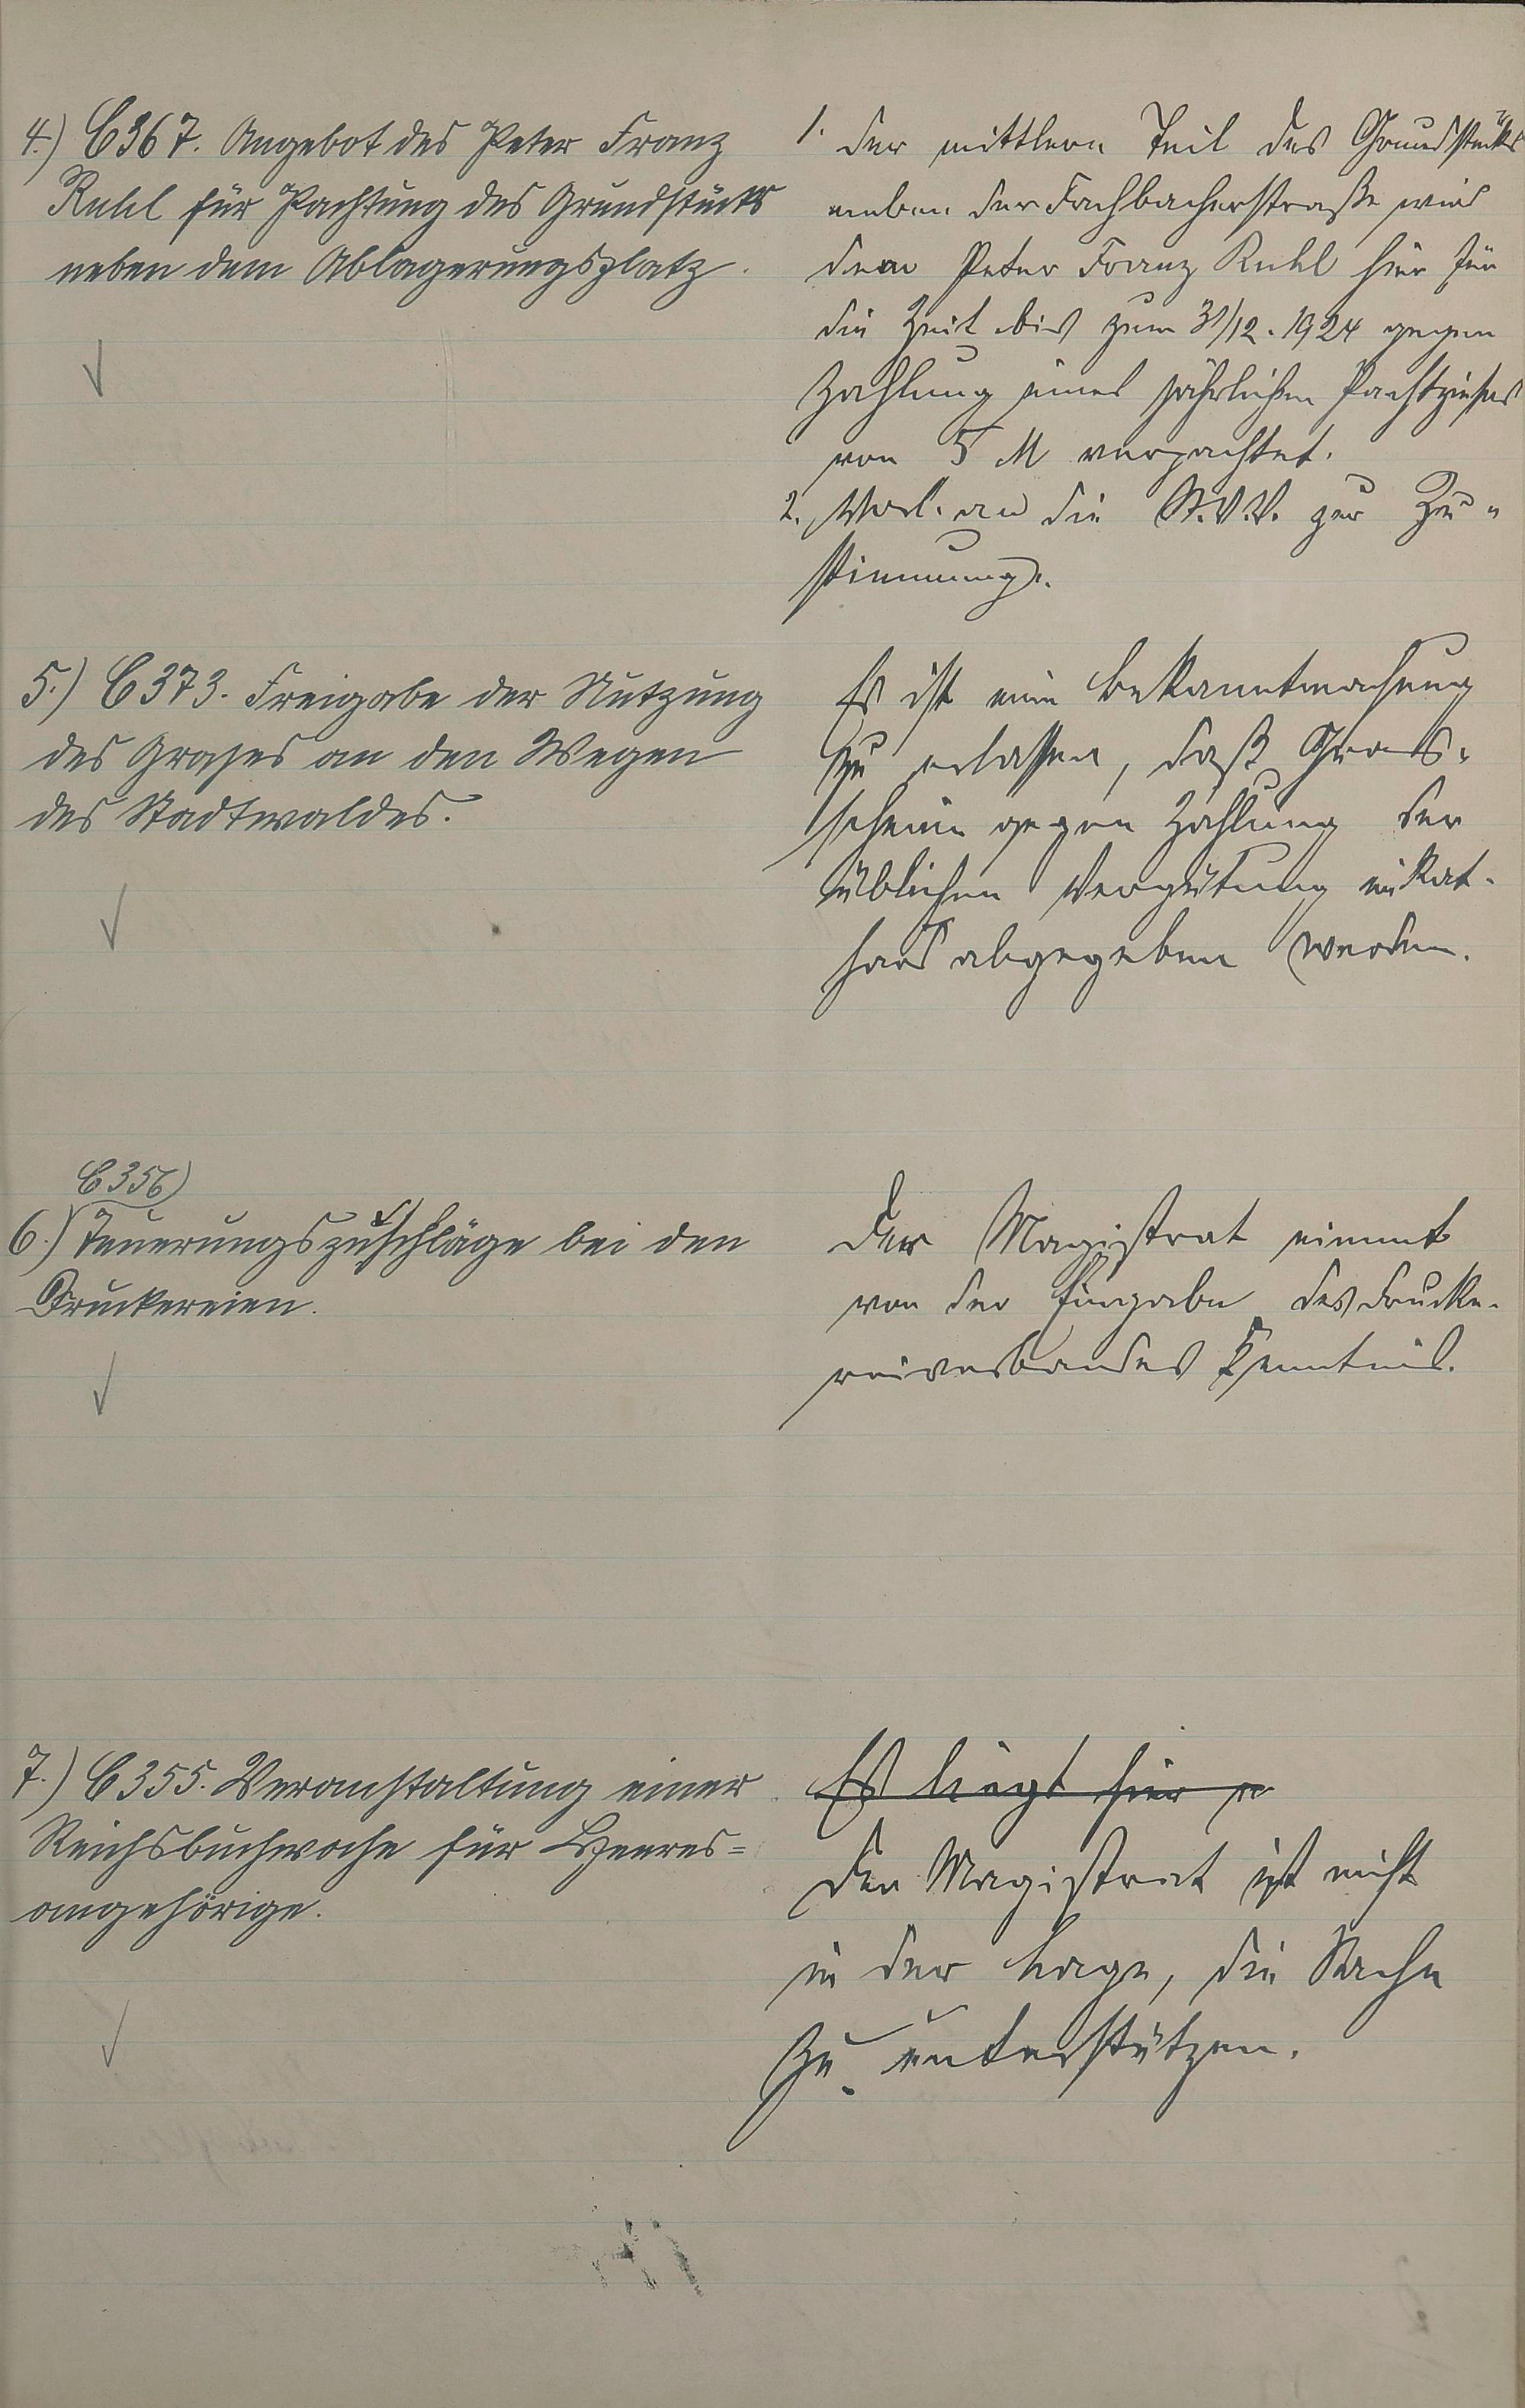 4.) C 367. Angebot des Peter Franz
Ruhl für Pachtung des Grundstücks
neben dem Ablagerungsplatz.
1. Der mittlere Teil des Grundstücks
neben der Fachbacherstraße wird
dem Peter Franz Ruhl hier für
die Zeit bis zum 31/12. 1924 gegen
Zahlung eines jährlichen Pachtzinses
von 5 M verpachtet.
2. Vorl. an die St.V.V. zur Zu-
stimmung.
5.) C 373. Freigabe der Nutzung
des Grases an den Wegen
des Stadtwaldes.
Es ist eine Bekanntmachung
zu erlassen, daß Gras-
scheine gegen Zahlung der
üblichen Vergütung im Rat-
haus abgegeben werden.
C 356)
6.) Teuerungszuschläge bei den
Druckereien.
Der Magistrat nimmt
von der Eingabe des Drucke-
reiverbandes Kenntnis.
7.) C 355. Veranstaltung einer
Reichsbuchwoche für Heeres-
angehörige.
Es liegt hier
Der Magistrat ist nicht
in der Lage, die Sache
zu unterstützen.